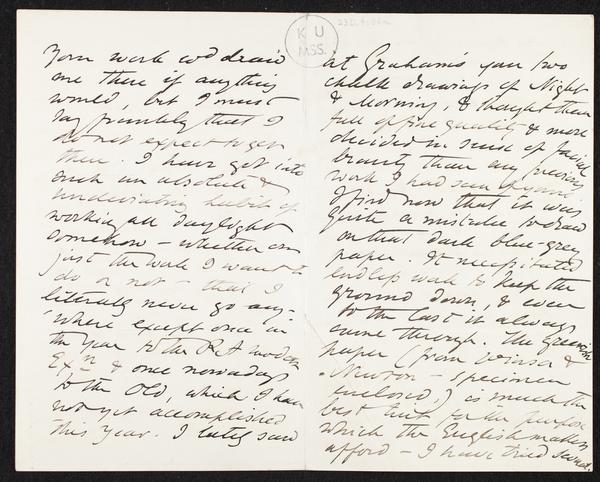 K U
MSS.
Your work cod draw
me there if anything
would, but I must
say frankly that I
do not expect to get
there. I have got into
such an absolute &
undeviating habit of
working all daylight
somehow – whether on
just the work I want to
do or not – that I
literally never go any-
where except once in
the year to the RA modern
Exn & once nowadays
to the Old, which I have
not yet accomplished
this year. I lately saw
at Graham's your two
chalk drawings of Night
& Morning, & thought them
full of fine quality & more
decided in sense of facial
beauty than any previous
work I had seen of yours
I find now that it was
quite a mistake to draw
on that dark blue-grey
paper. It necessitated
endless work to keep the
ground down, & even
to the last it always
came through. The greenish
paper (from Winsor &
Newton – specimen
enclosed,) is much the
best tint for the purpose
which the English makers
afford – I have tried several